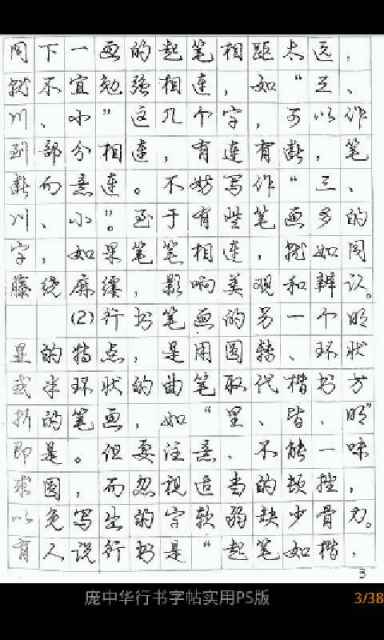 同下一画的起笔相距太远，
就不宜勉强相连，如“三、
川、小”这几个字，可以作
到部分相连，有连有断，笔
断而意连。不妨写作“三、
川、小”。至于有些笔画多的
字，如果笔笔相连，就如同
藤绕麻缠，影响美观和辨认。
(2)行书笔画的另一个明
显的特点，是用圆转、环状
或半环状的曲笔取代楷书方
折的笔画，如“里、皆、明”
即是。但要注意，不能一味
求圆，而忽视适当的顿挫，
以免写生的字软弱缺少骨力。
有人说行书是“起笔如楷，
3
庞中华行书字帖实用PS版
3/38